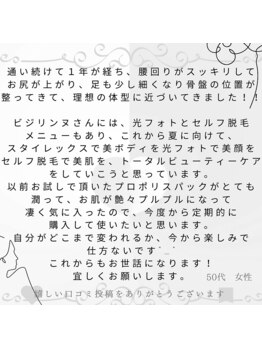 通い続けて１年が経ち、腰回りがスッキリして
お尻が上がり、足も少し細くなり骨盤の位置が
整ってきて、理想の体型に近づいてきました！！
ビジリンヌさんには、光フォトとセルフ脱毛
メニューもあり、これから夏に向けて、
スタイレックスで美ボディを光フォトで美顔を
セルフ脱毛で美肌を、トータルビューティーケア
をしていこうと思っています。
以前お試しで頂いたプロポリスパックがとても
潤って、お肌が艶々プルプルになって
凄く気に入ったので、今度から定期的に
購入して使いたいと思います。
自分がどこまで変われるか、今から楽しみで
仕方ないです
これからもお世話になります！
宜しくお願いします。
50代　女性
嬉しい口コミ投稿をありがとうございます